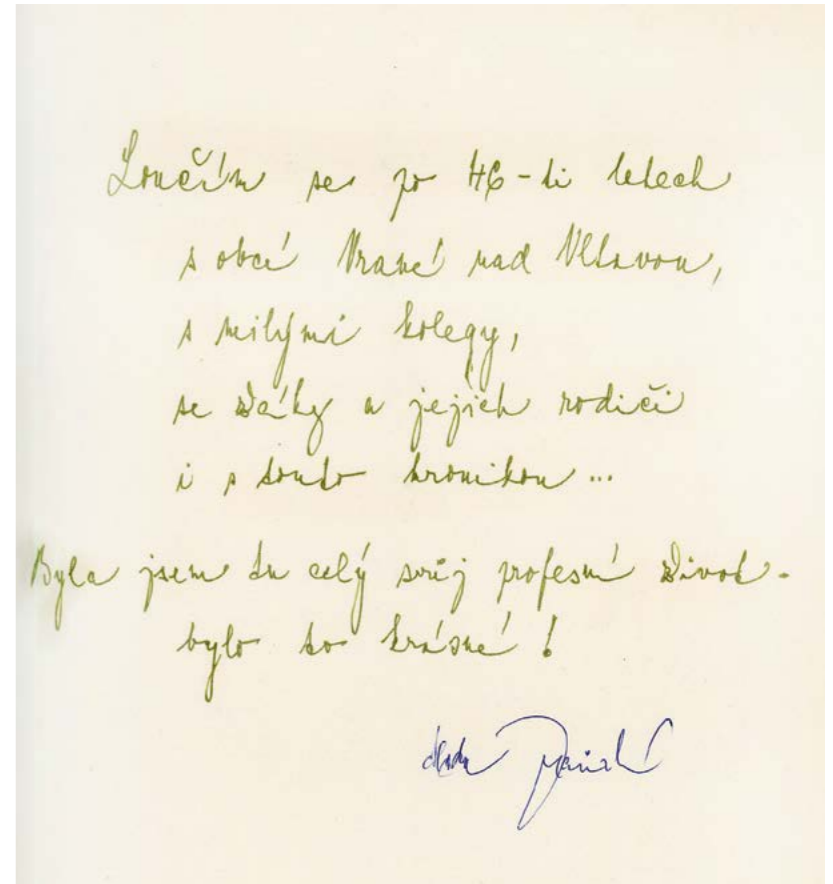 Loučím se po 46-ti letech
s obcí Vrané nad Vltavou,
s milými kolegy,
se žáky a jejich rodiči
i s touto kronikou...
Byla jsem tu celý svůj profesní život -
bylo to krásné!